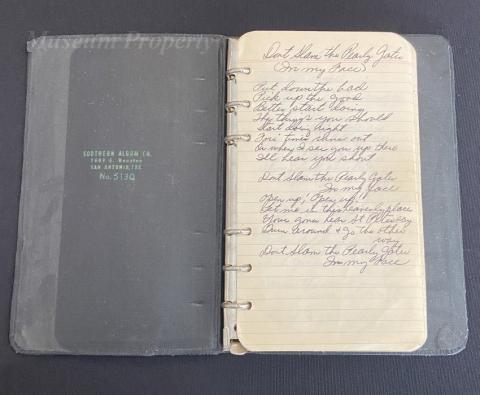 Museum Property
SOUTHERN ALBUM CO.
1609 S. Hackberry
SAN ANTONIO, TEX.
No. 513Q
Dont Slam the Pearly Gates
(In my Face)
Put down the bad
Pick up the good
Better start doing
The things you should
Start doing right
Fore times runs out
Or when I see you up there
I'll hear you shout
Dont Slam the Pearly Gates
In my face
Open up, Open up
Let me in this heavenly place
Your gonna hear St Peter say
Turn around & go the other
way
Dont Slam the Pearly Gates
In my Face